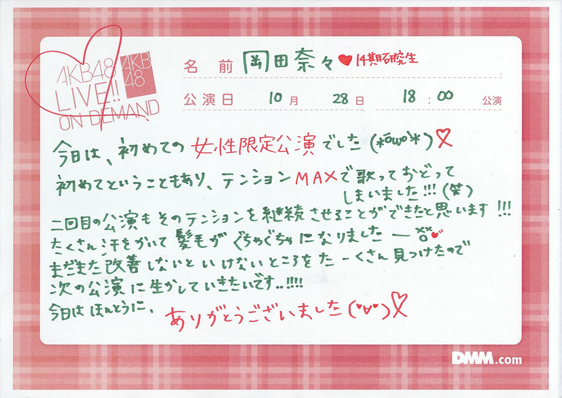 AKB48
LIVE!!
ON DEMAND
AKB
48
名 前 岡田奈々♥14期研究生
公演日 10月 28日 18:00 公演
今日は、初めての女性限定公演でした(*ӧωӧ*)♡
初めてということもあり、テンションMAXで歌っておどって
しまいました!!!(笑)
二回目の公演もそのテンションを継続させることができたと思います!!!
たくさん汗をかいて髪毛がぐちゃぐちゃになりましたー
まだまた改善しないといけないところをたーくさん見つけたので
次の公演に生かしていきたいです..!!!!
今日はほんとうに、
ありがとうございました(*'∀'*)♡
DMM.com